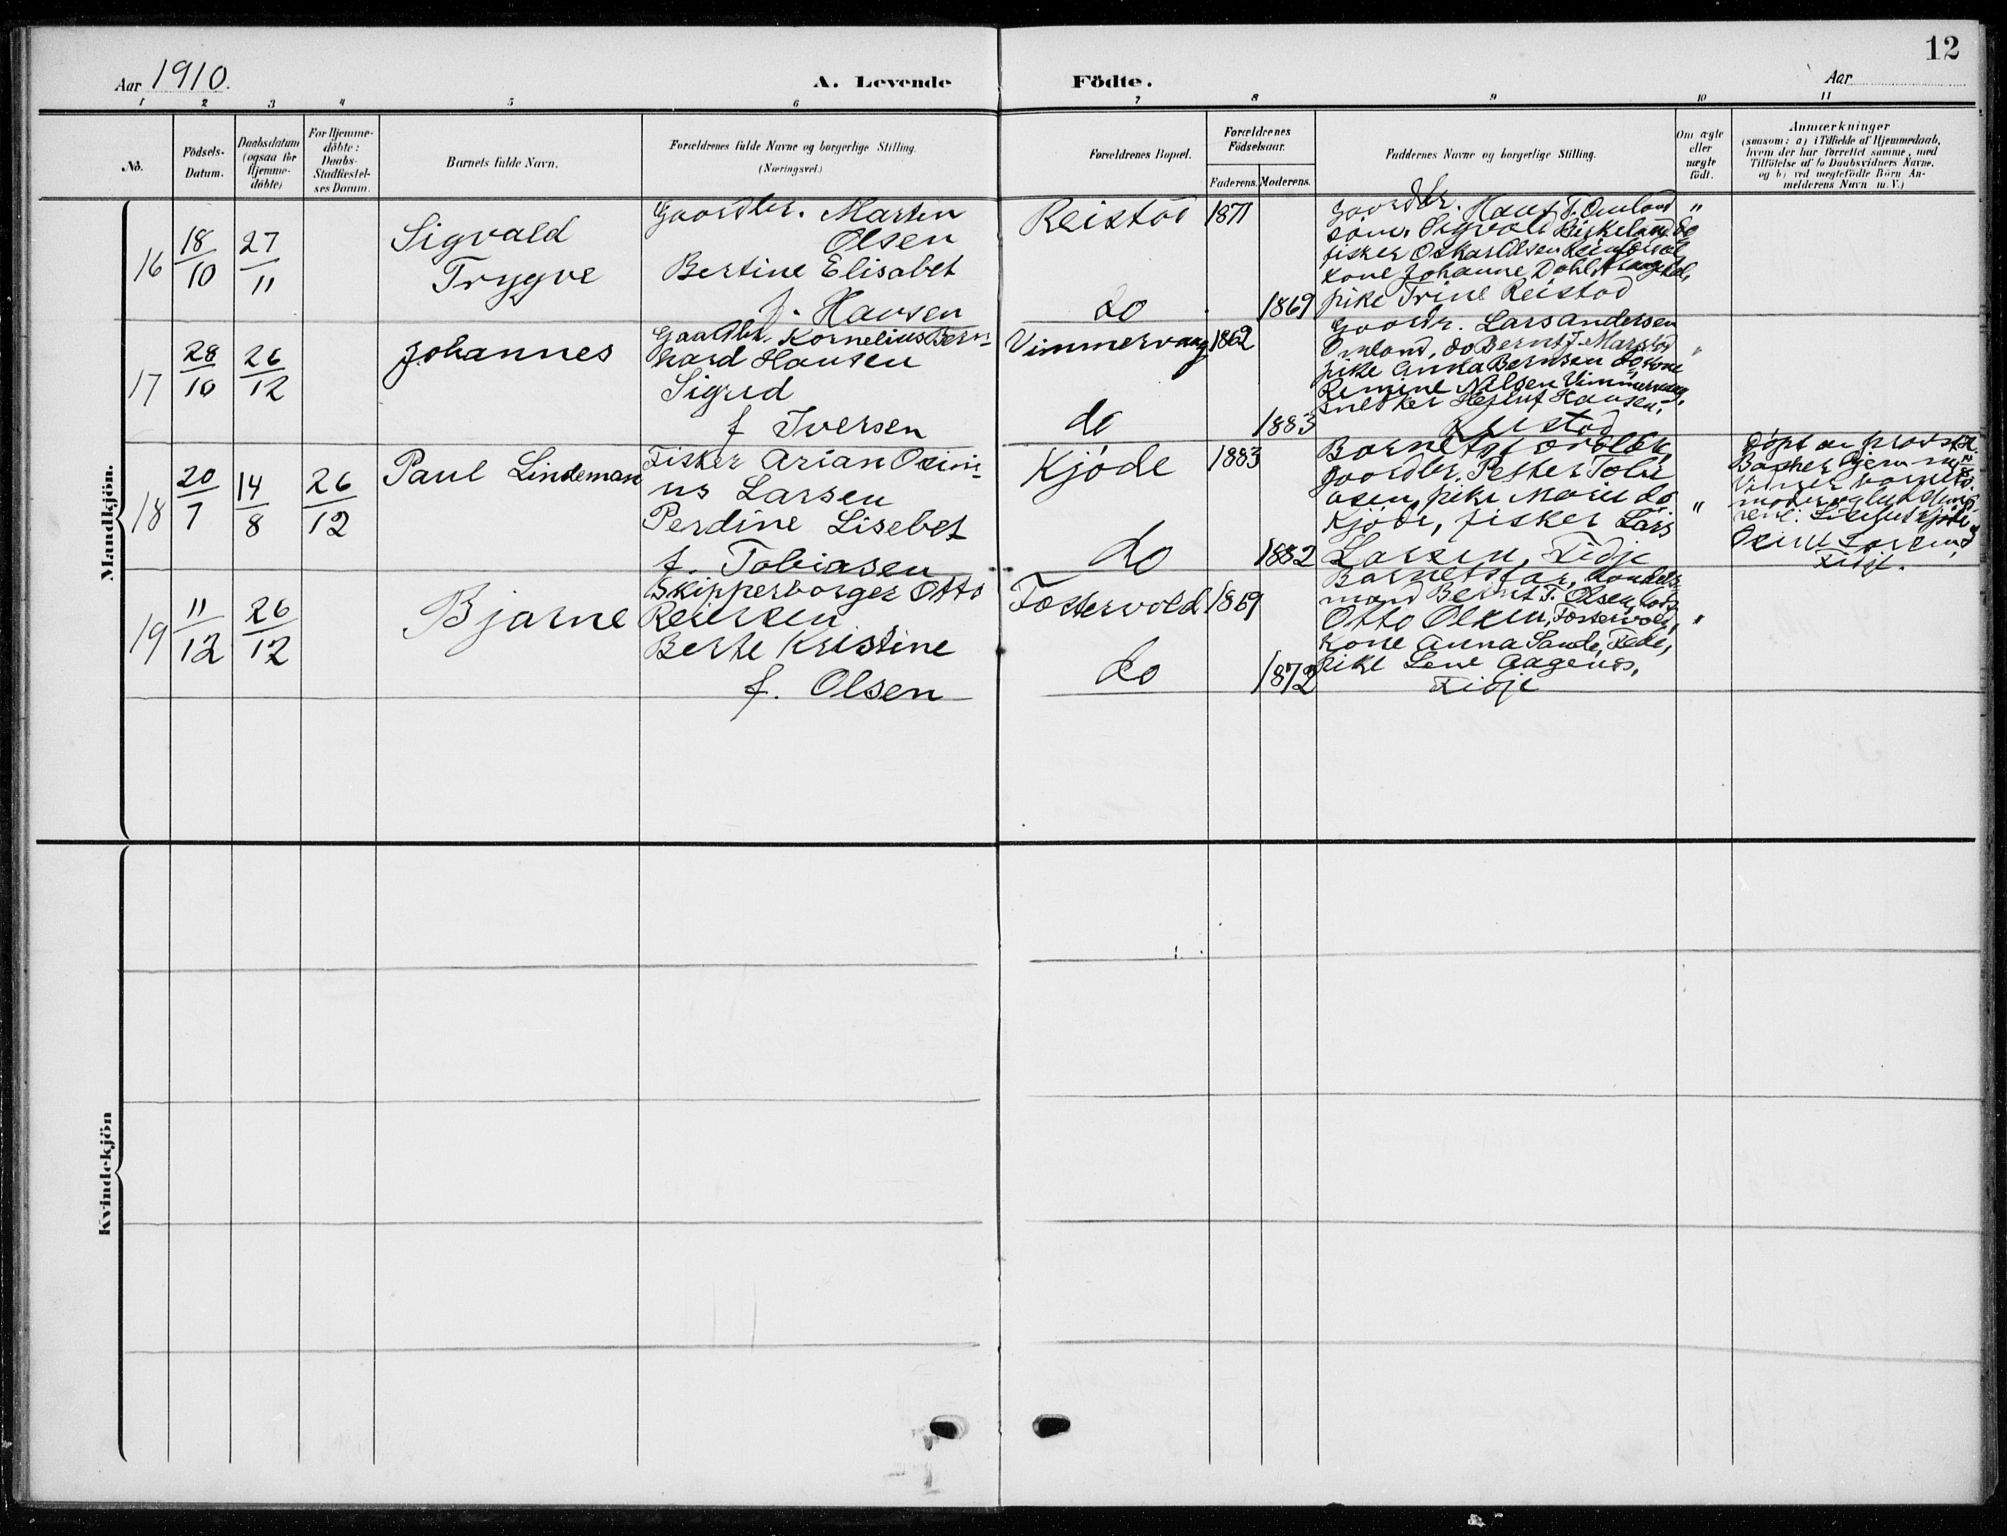 12
Aar 1910.
A. Levende Födte.
Aar
1 2 3 4 5 6 7 8 9 10 11
No.
Födsels-
Datum.
Daabsdatum
(ogsaa for
Hjemme-
döbte)
For Hjemme-
döbte:
Daabs-
Stadfæstel-
ses Datum.
Barnets fulde Navn.
Forældrenes fulde Navne og borgerlige Stilling.
(Næringsvei.)
Forældrenes Bopæl.
Forældrenes
Födselsaar.
Faderens. Moderens.
Faddernes Navne og borgerlige Stilling.
Om ægte
eller
uægte
födt.
Anmærkninger
(saasom: a) i Tilfælde af Hjemmedaab,
hvem der har forrettet samme, med
Tilföielse af to Daabsvidners Navne,
og b) ved uægtefödte Börn An-
melderens Navn m. V.)
Mandkjön.
16
18/10
27/11
Sigvald
Trygve
Gaardbr. Marten
Olsen
Bertine Elisabet
f. Hansen
Reistöd
do
1871
1869
Gaardbr. Hans T. Omland
sönn. Sigvald Birkeland do
fisker Oskar Olsen
kone Johanne Dahl
pike Trine Reistöd
"
17
28/10
26/12
Johannes
Gaardbr. Kornelius Bern-
hard Hansen
Sigrid
f Iversen
Vimmervang
do
1862
1883
Gaardbr. Lars Andersen
Omland, do Bernt J. Marstöd
pike Anna Bernsen do kone
Remine Nilsen Vimmervang,
snedker Hansen,
Reistöd
"
18
20/7
14/8
26/12
Paul Lindeman
Fisker Arian Osmi-
us Larsen
Perdine Lisebet
f. Tobiasen
Kjöde
do
1883
1882
Barnets foreldre,
gaardbr. Petter Tobi-
asen, pike Marie do
Kjöde, fisker Lars
Larsen, Fidje
"
Döpt av provst
hjem-me
Vidner barnets
moder
Kjöde
Larsen,
Fidje.
19
11/12
26/12
Bjarne
Skipperborger Otto
Reiersen
Berte Kristine
f. Olsen
Fostervold
do
1869
1872
Barnets far, handels-
mand Bernt T. Olsen,
Otto Olsen, Fostervold,
Kone Anna Sande, Fede,
pike Lene Aagenes,
Fidje
"
Kvindekjön